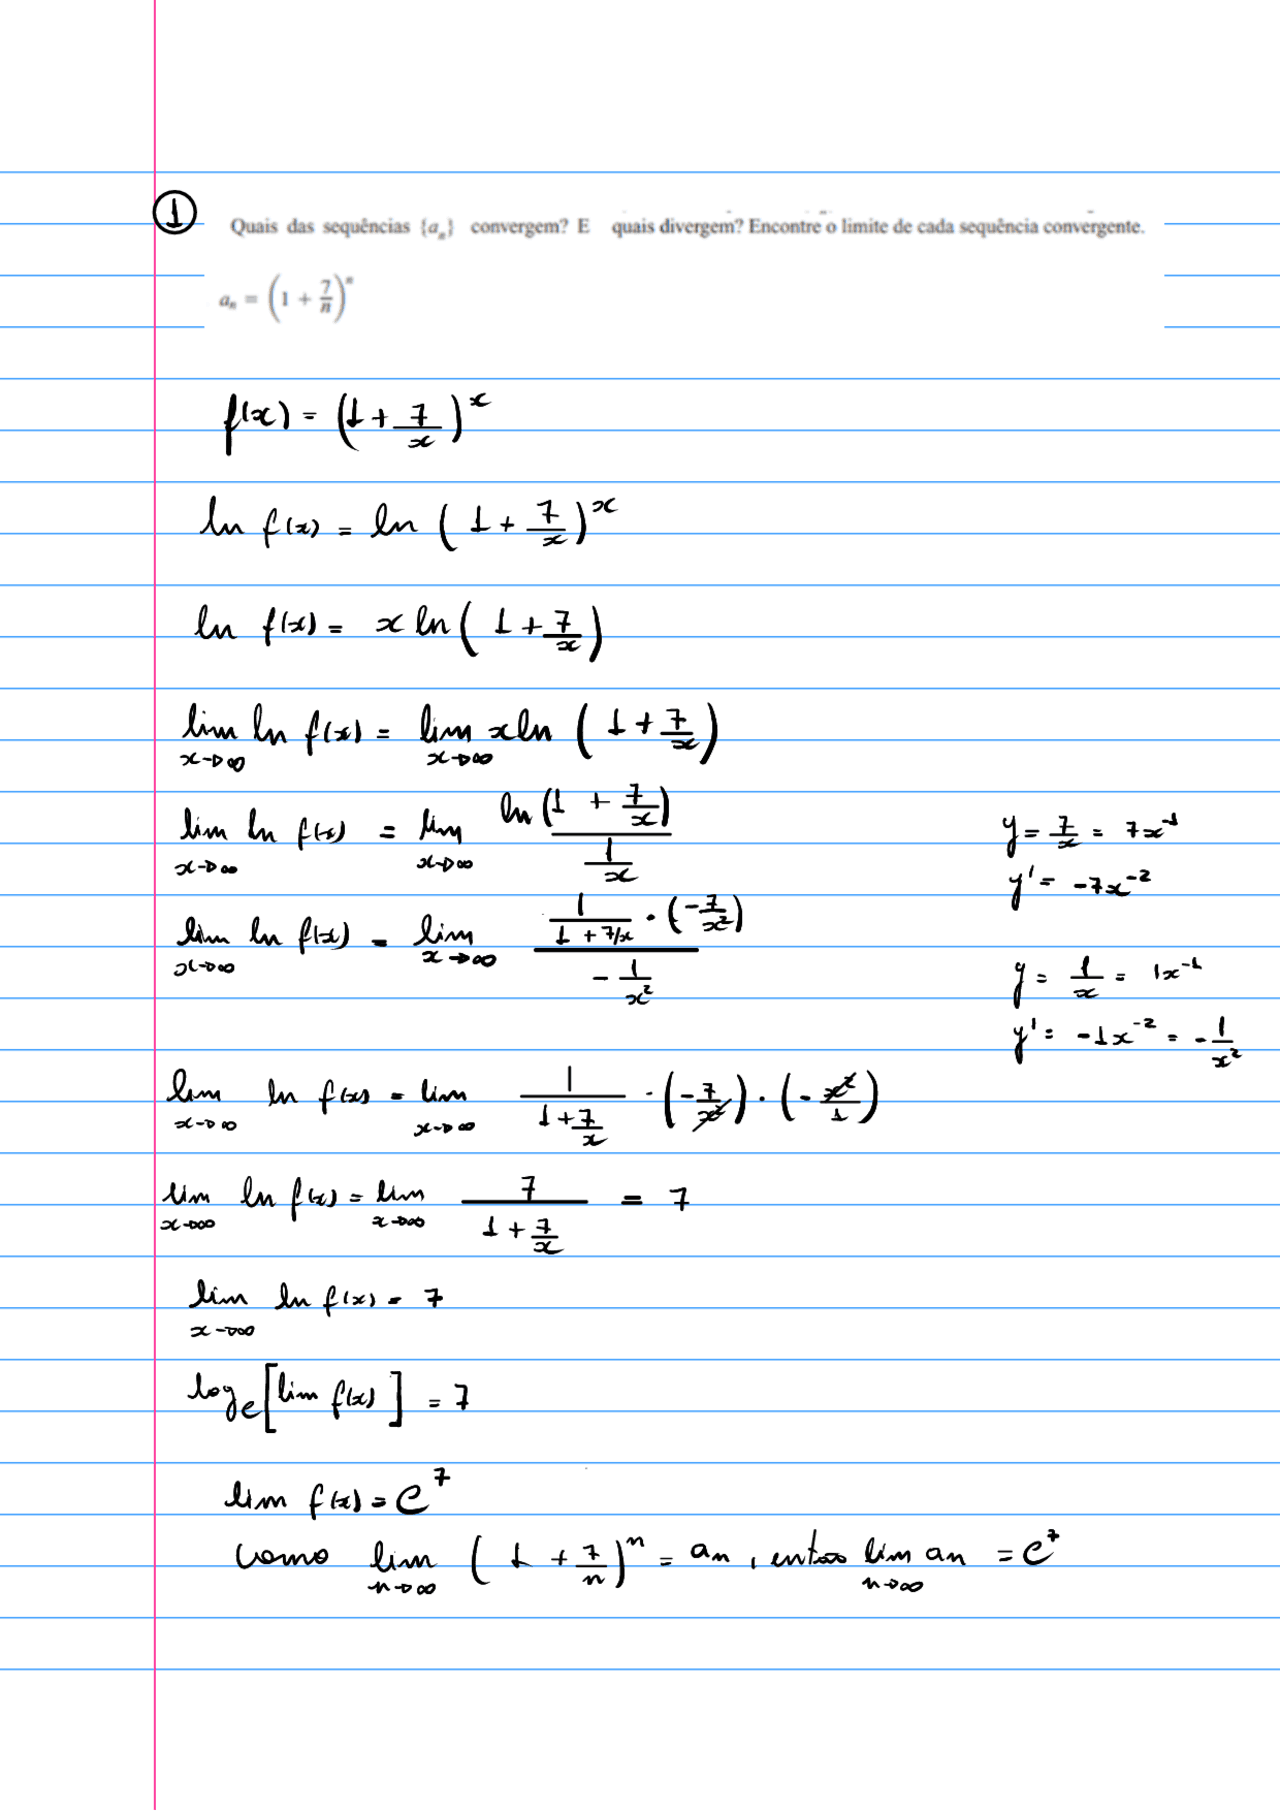 ① Quais das sequências {aₙ} convergem? E quais divergem? Encontre o limite de cada sequência convergente.
aₙ = (1 + 7/n)ⁿ
f(x) = (1 + 7/x)^x
ln f(x) = ln (1 + 7/x)^x
ln f(x) = x ln (1 + 7/x)
lim x→∞ ln f(x) = lim x→∞ x ln (1 + 7/x)
lim x→∞ ln f(x) = lim x→∞ ln (1 + 7/x) / (1/x)
y = 7/x = 7x^-1
y' = -7x^-2
lim x→∞ ln f(x) = lim x→∞ (1/(1 + 7/x) · (-7/x²)) / (-1/x²)
y = 1/x = 1x^-1
y' = -1x^-2 = -1/x²
lim x→∞ ln f(x) = lim x→∞ 1/(1 + 7/x) · (-7/x²) · (-x²/1)
lim x→∞ ln f(x) = lim x→∞ 7/(1 + 7/x) = 7
lim x→∞ ln f(x) = 7
log_e [lim f(x)] = 7
lim f(x) = e^7
como lim n→∞ (1 + 7/n)^n = an, então lim n→∞ an = e^7